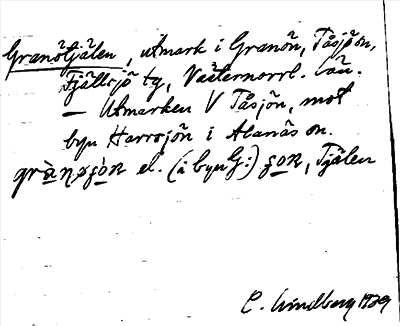 Granötjälen, utmark i Granön, Tåsjön,
Fjällsjö tg, Västernorrl. län.
— Utmarken V Tåsjön, mot
byn Harrsjön i Alanäs sn.
el. (i byn G:) , Tjälen
C. Lindberg 1939